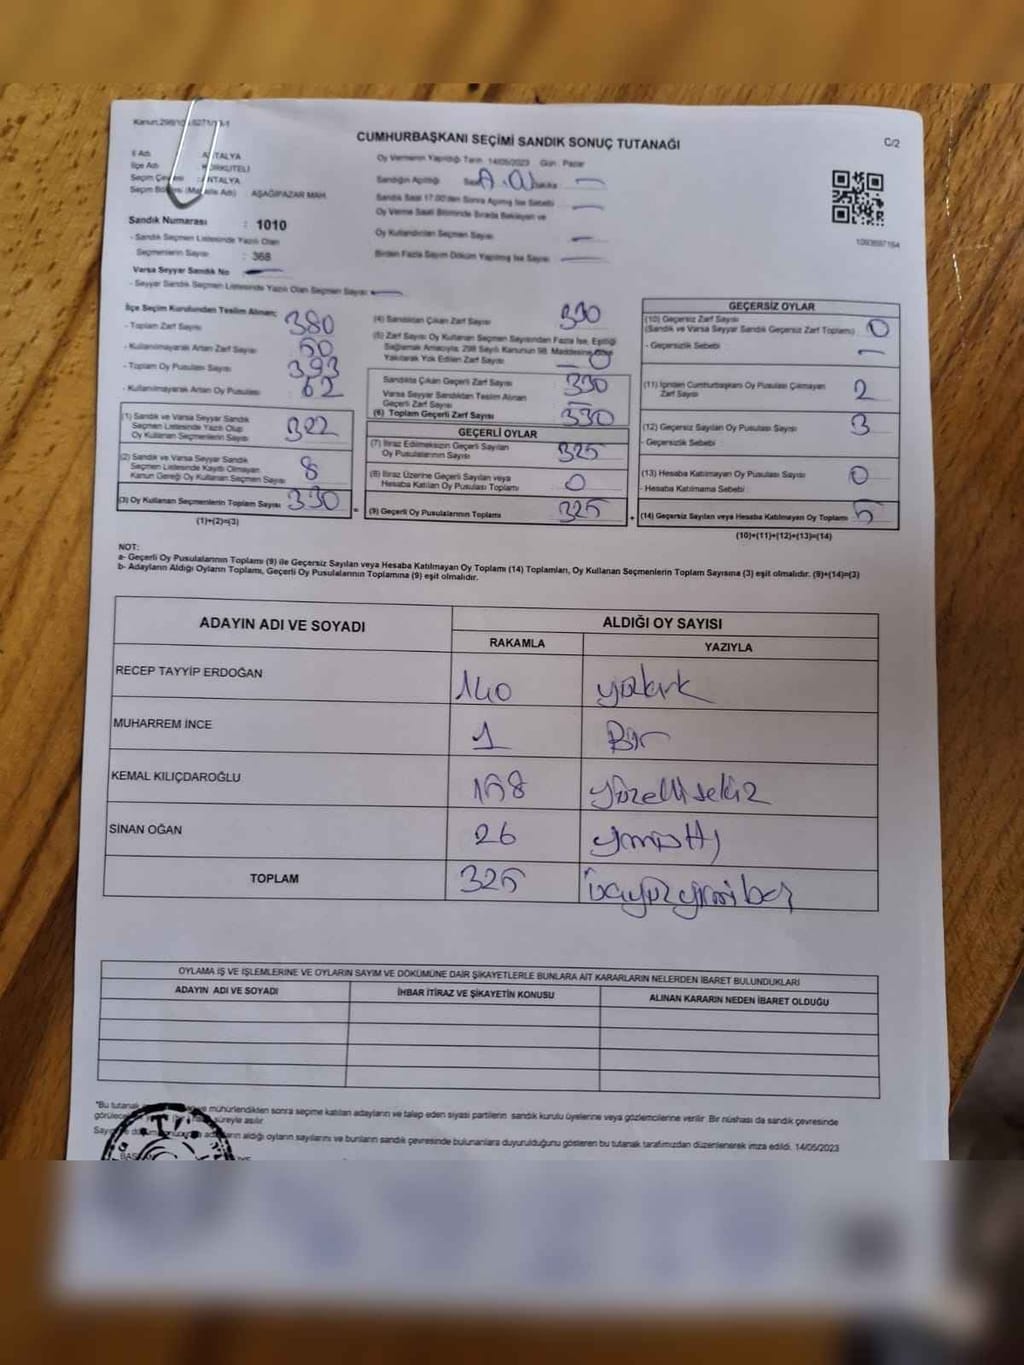 CUMHURBAŞKANI SEÇİMİ SANDIK SONUÇ TUTANAĞI
C/2
İl Adı : ANTALYA
İlçe Adı : KORKUTELİ
Seçim Çevresi : ANTALYA
Seçim Bölgesi (Mahalle Adı) : AŞAĞIPAZAR MAH
Sandık Numarası : 1010
- Sandık Seçmen Listesinde Yazılı Olan
Seçmenlerin Sayısı : 368
Varsa Seyyar Sandık No
- Seyyar Sandık Seçmen Listesinde Yazılı Olan Seçmen Sayısı
Oy Vermenin Yapıldığı Tarih 14/05/2023 Gün Pazar
Sandığın Açıldığı
Sandık Saat 17.00'den Sonra Açılmış İse Sebebi
Oy Verme Saati Bitiminde Sırada Bekleyen ve
Oy Kullandırılan Seçmen Sayısı
Birden Fazla Sayım Döküm Yapılmış İse Sayısı
1093697164
İlçe Seçim Kurulundan Teslim Alınan;
- Toplam Zarf Sayısı 380
- Kullanılmayarak Artan Zarf Sayısı 50
- Toplam Oy Pusulası Sayısı 393
- Kullanılmayarak Artan Oy Pusulası 62
(1) Sandık ve Varsa Seyyar Sandık
Seçmen Listesinde Yazılı Olup
Oy Kullanan Seçmenlerin Sayısı 322
(2) Sandık ve Varsa Seyyar Sandık
Seçmen Listesinde Kayıtlı Olmayan
Kanun Gereği Oy Kullanan Seçmen Sayısı 8
(3) Oy Kullanan Seçmenlerin Toplam Sayısı 330
(1)+(2)=(3)
(4) Sandıktan Çıkan Zarf Sayısı 330
(5) Zarf Sayısı Oy Kullanan Seçmen Sayısından Fazla İse, Eşitliği
Sağlamak Amacıyla; 298 Sayılı Kanunun 98. Maddesine Göre
Yakılarak Yok Edilen Zarf Sayısı 0
Sandıkta Çıkan Geçerli Zarf Sayısı 330
Varsa Seyyar Sandıktan Teslim Alınan
Geçerli Zarf Sayısı
(6) Toplam Geçerli Zarf Sayısı 330
GEÇERLİ OYLAR
(7) İtiraz Edilmeksizin Geçerli Sayılan
Oy Pusulalarının Sayısı 325
(8) İtiraz Üzerine Geçerli Sayılan veya
Hesaba Katılan Oy Pusulası Toplamı 0
(9) Geçerli Oy Pusulalarının Toplamı 325
GEÇERSİZ OYLAR
(10) Geçersiz Zarf Sayısı
(Sandık ve Varsa Seyyar Sandık Geçersiz Zarf Toplamı) 0
- Geçersizlik Sebebi
(11) İçinden Cumhurbaşkanı Oy Pusulası Çıkmayan
Zarf Sayısı 2
(12) Geçersiz Sayılan Oy Pusulası Sayısı 3
- Geçersizlik Sebebi
(13) Hesaba Katılmayan Oy Pusulası Sayısı 0
- Hesaba Katılmama Sebebi
(14) Geçersiz Sayılan veya Hesaba Katılmayan Oy Toplamı 5
(10)+(11)+(12)+(13)=(14)
NOT:
a- Geçerli Oy Pusulalarının Toplamı (9) ile Geçersiz Sayılan veya Hesaba Katılmayan Oy Toplamı (14) Toplamları, Oy Kullanan Seçmenlerin Toplam Sayısına (3) eşit olmalıdır. (9)+(14)=(3)
b- Adayların Aldığı Oyların Toplamı, Geçerli Oy Pusulalarının Toplamına (9) eşit olmalıdır.
ADAYIN ADI VE SOYADI
ALDIĞI OY SAYISI
RAKAMLA YAZIYLA
RECEP TAYYİP ERDOĞAN 140 yüzkırk
MUHARREM İNCE 1 Bir
KEMAL KILIÇDAROĞLU 158 yüzellisekiz
SİNAN OĞAN 26 yirmialtı
TOPLAM 325 üçyüzyirmibeş
OYLAMA İŞ VE İŞLEMLERİNE VE OYLARIN SAYIM VE DÖKÜMÜNE DAİR ŞİKAYETLERLE BUNLARA AİT KARARLARIN NELERDEN İBARET BULUNDUKLARI
ADAYIN ADI VE SOYADI
İHBAR İTİRAZ VE ŞİKAYETİN KONUSU
ALINAN KARARIN NEDEN İBARET OLDUĞU
"Bu tutanak mühürlendikten sonra seçime katılan adayların ve talep eden siyasi partilerin sandık kurulu üyelerine veya gözlemcilerine verilir. Bir nüshası da sandık çevresinde
süreyle asılır.
aldığı oyların sayılarını ve bunların sandık çevresinde bulunanlara duyurulduğunu gösteren bu tutanak tarafımızdan düzenlenerek imza edildi. 14/05/2023